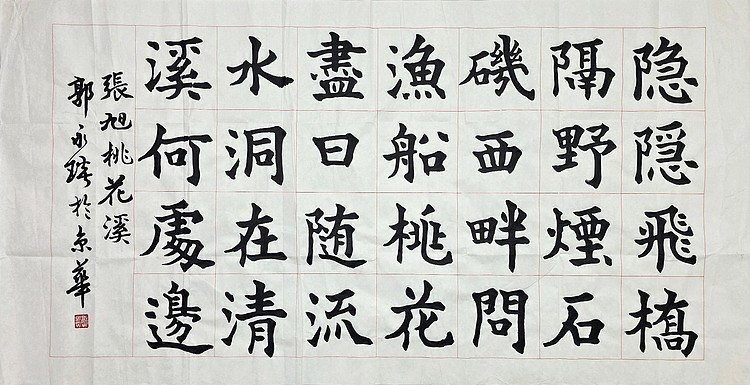 隐隱飛橋
隔野煙石
磯西畔問
漁船桃花
盡日随流
水洞在清
溪何處邊
張旭桃花溪
郭永於京華